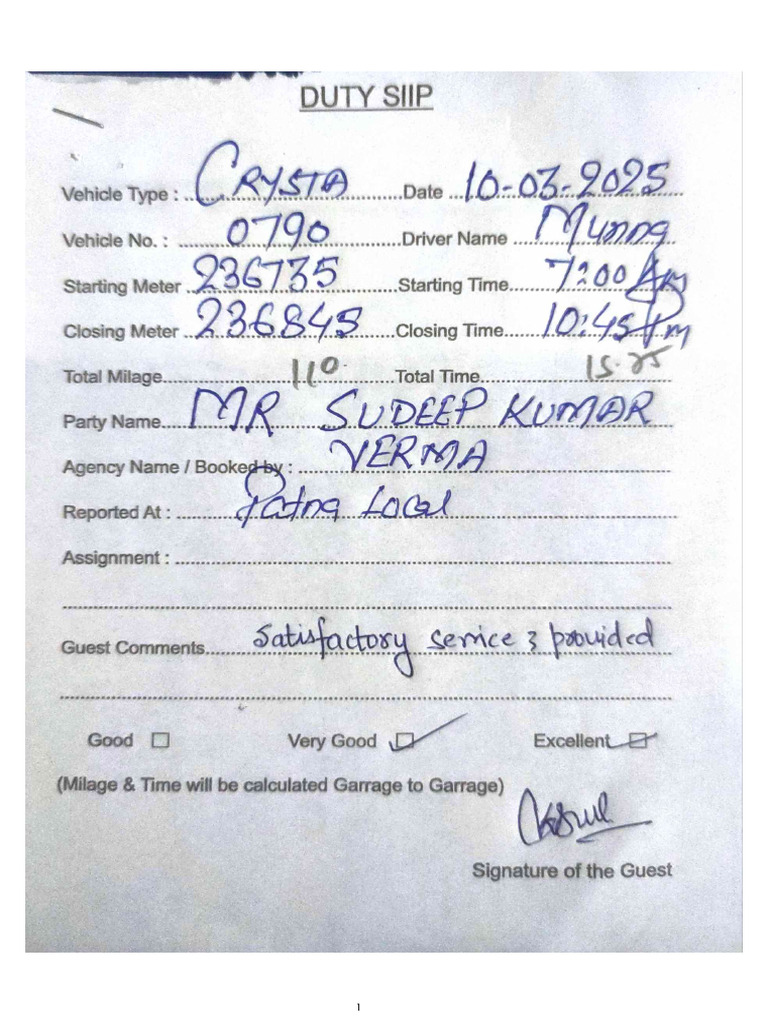 DUTY SIIP
Vehicle Type : CRYSTA Date 10-03-2025
Vehicle No. : 0790 Driver Name Munna
Starting Meter 236735 Starting Time 7:00 Am
Closing Meter 236845 Closing Time 10:45 Pm
Total Milage 110 Total Time
Party Name MR SUDEEP KUMAR
Agency Name / Booked by : VERMA
Reported At : Patna Local
Assignment :
Guest Comments Satisfactory service provided
Good Very Good Excellent
(Milage & Time will be calculated Garrage to Garrage)
Signature of the Guest
1